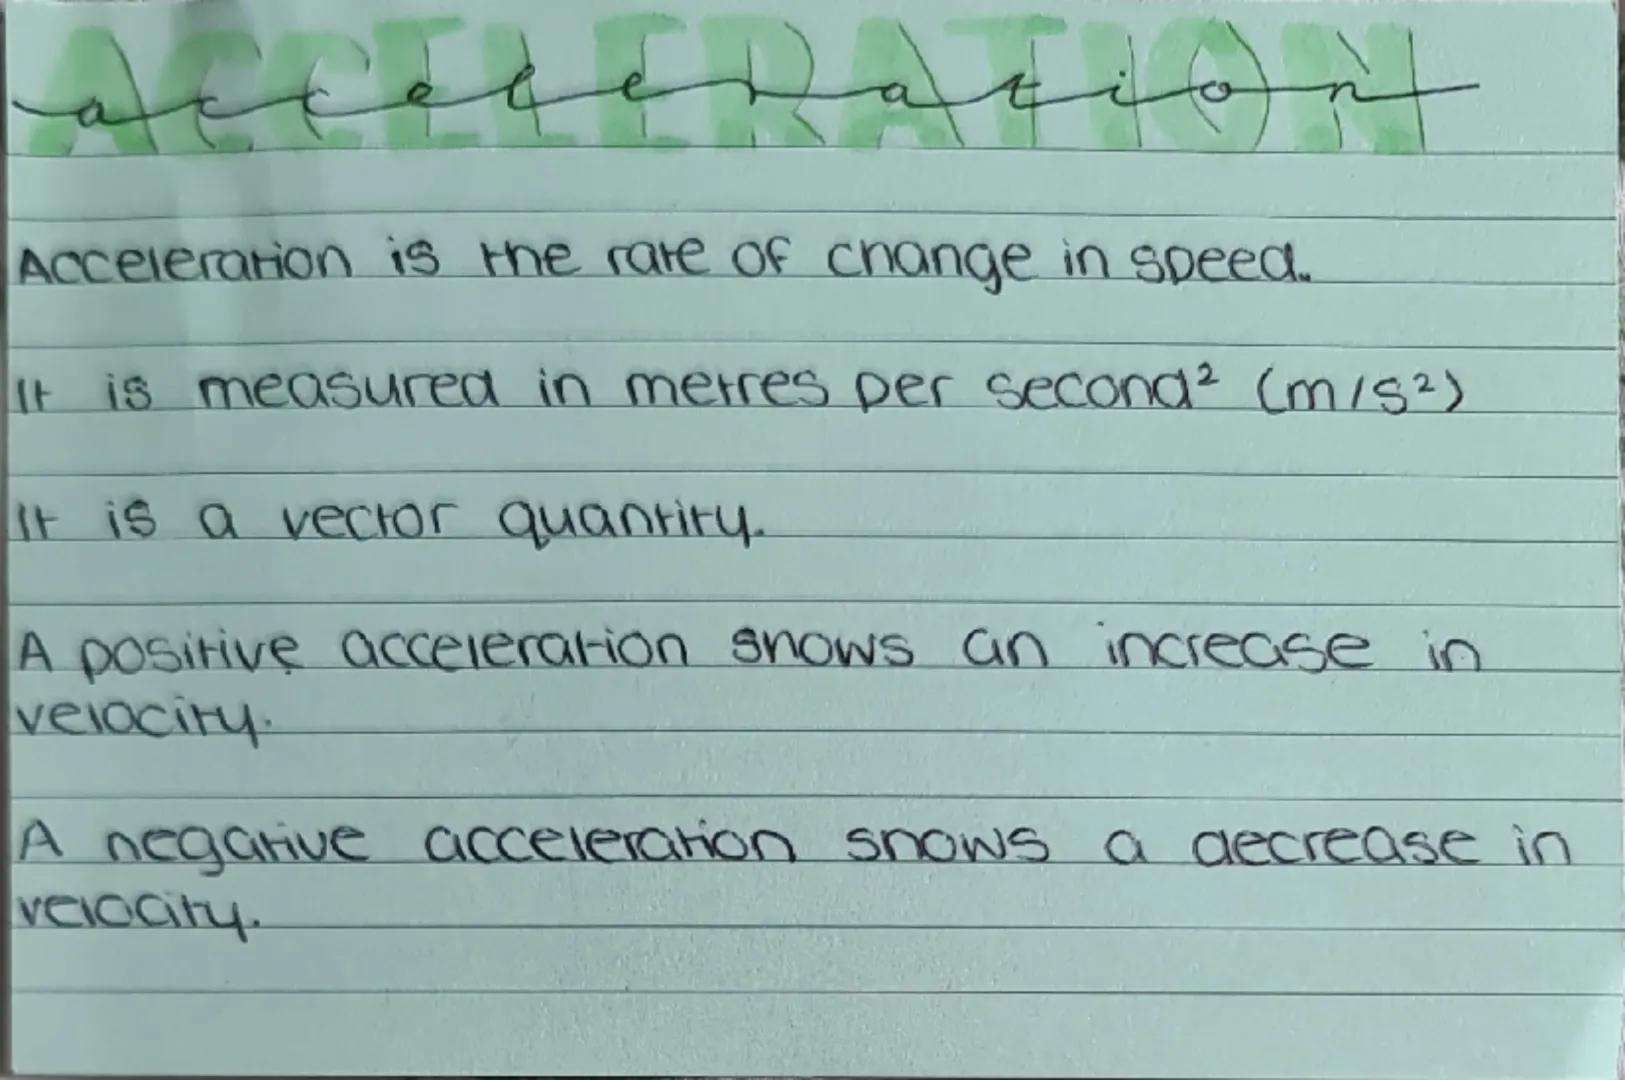 ACCELERATION
acceleration
Acceleration is the rate of change in speed.
It is measured in metres per second² (m/s²)
It is a vector quantity.
A positive acceleration shows an increase in
velocity.
A negative acceleration shows a decrease in
velocity.